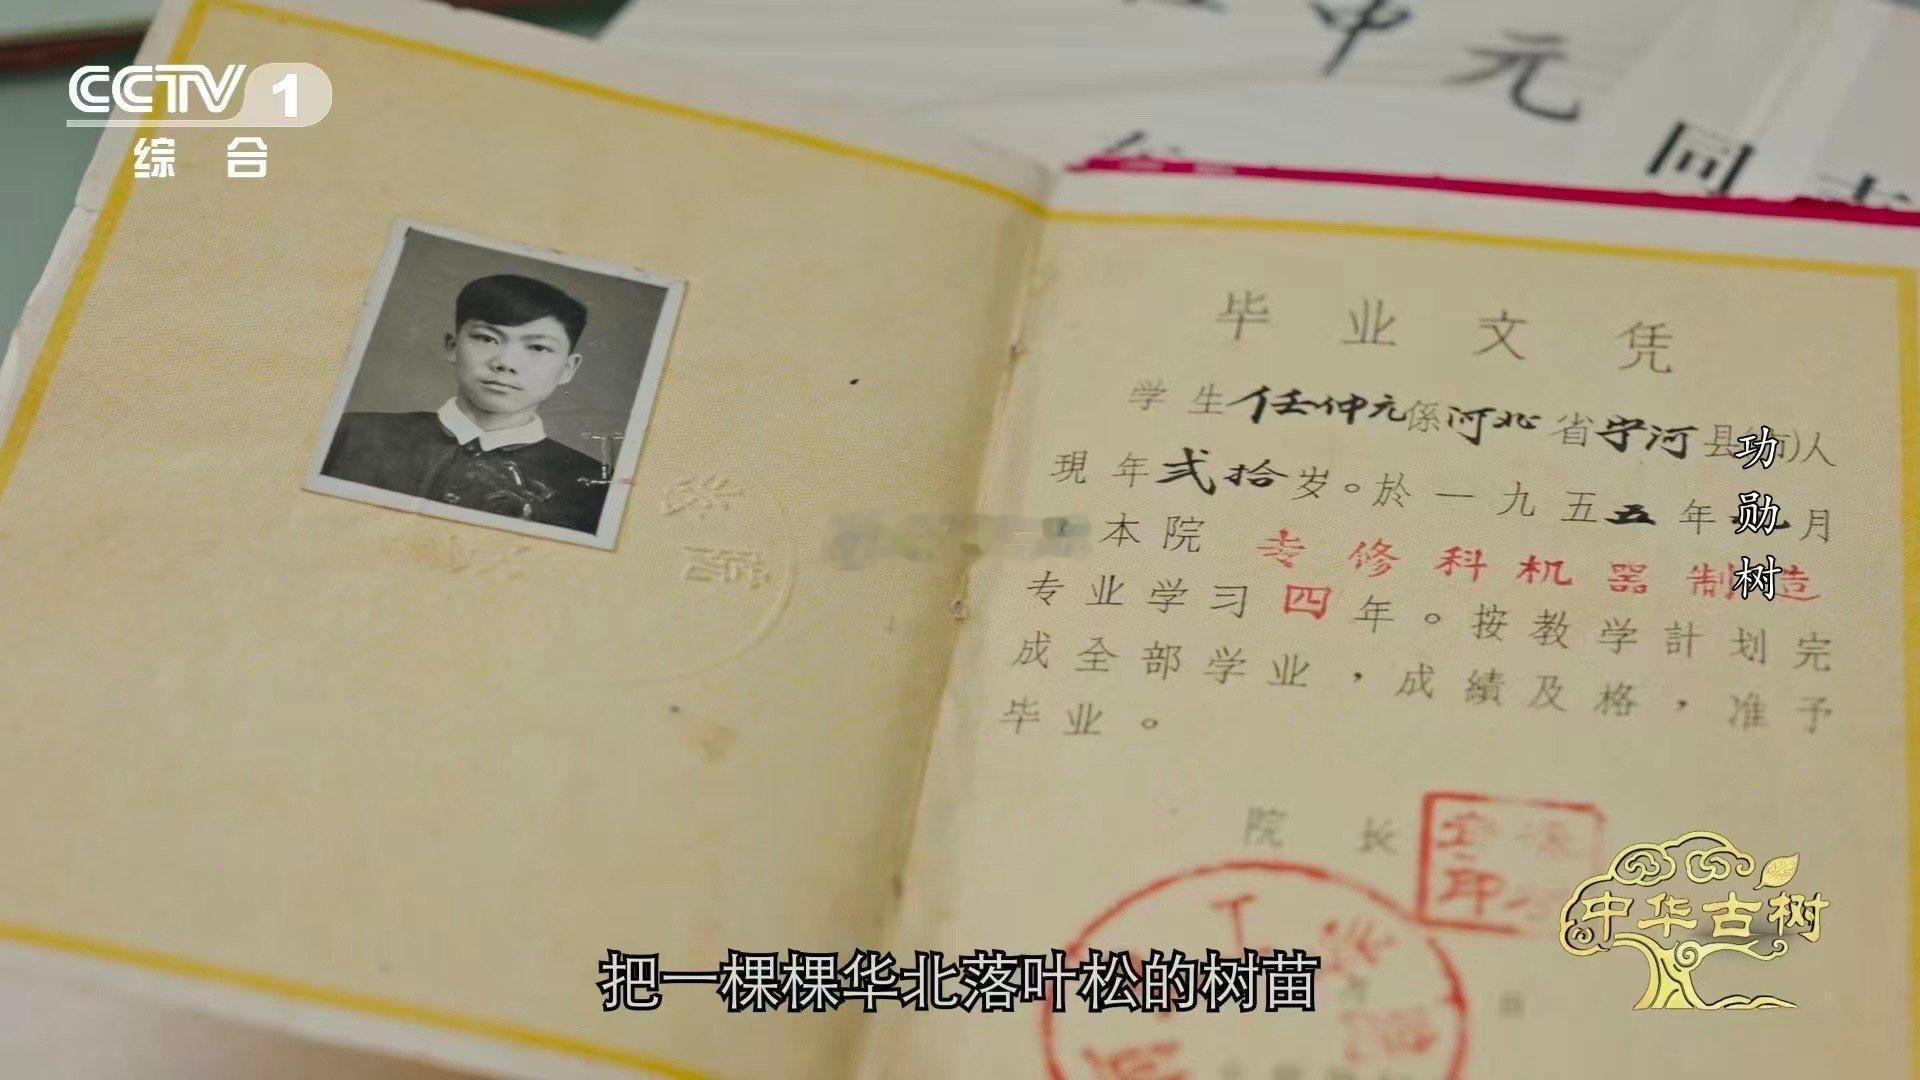 CCTV 1
综合
中元
同志
毕业文凭
学生任仲元係河北省宁河县(市)人
現年弍拾岁。於一九五五年 月
本院 专修科机器制造
专业学习四年。按教学計划完
成全部学业，成績及格，准予
毕业。
院长
印
工
功勋树
中华古树
把一棵棵华北落叶松的树苗